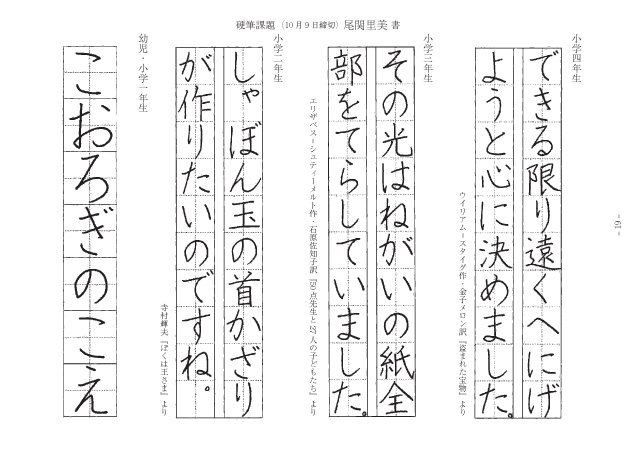 硬筆課題（10月9日締切）尾関里美 書
小学四年生
できる限り遠くへにげ
ようと心に決めました。
ウイリアム＝スタイグ作・金子メロン訳『盗まれた宝物』より
小学三年生
その光はねがいの紙全
部をてらしていました。
エリザベス＝シュティーメルト作・石原佐知子訳『50点先生と27人の子どもたち』より
小学二年生
しゃぼん玉の首かざり
が作りたいのですね。
寺村輝夫『ぼくは王さま』より
幼児・小学一年生
こおろぎのこえ
- 19 -